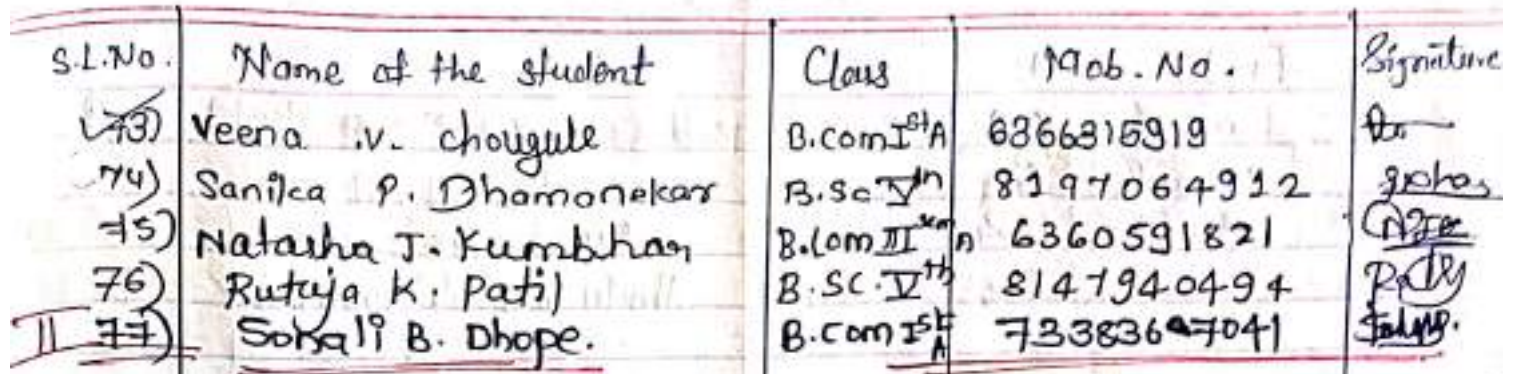 S.L.No. Name of the student Class Mob. No. Signature
73) Veena .v. chougule B.com I st A 6366315919
74) Sanika P. Dhamonekar B.Sc V th 8197064912
75) Natasha J. Kumbhar B.Com III sem A 6360591821
76) Rutuja K. Patil B.SC. V th 8147940494
II 77) Sonali B. Dhope. B.com I st A